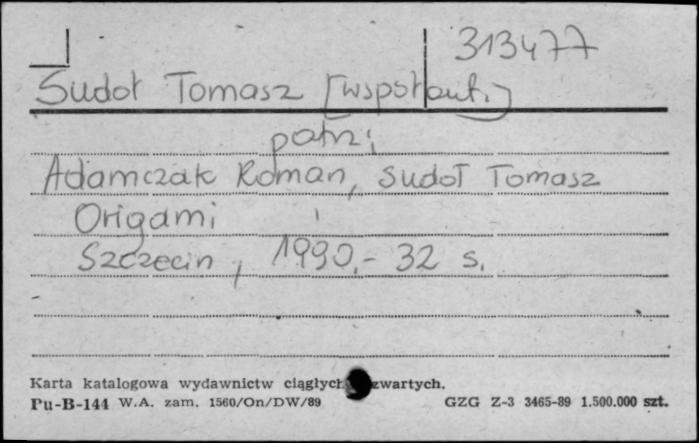 313477
Sudoł Tomasz [współaut.]
patrz:
Adamczak Roman, Sudoł Tomasz
Origami
Szczecin, 1990.- 32 s.
Karta katalogowa wydawnictw ciągłych zwartych.
Pu-B-144 W.A. zam. 1560/On/DW/89 GZG Z-3 3465-89 1.500.000 szt.